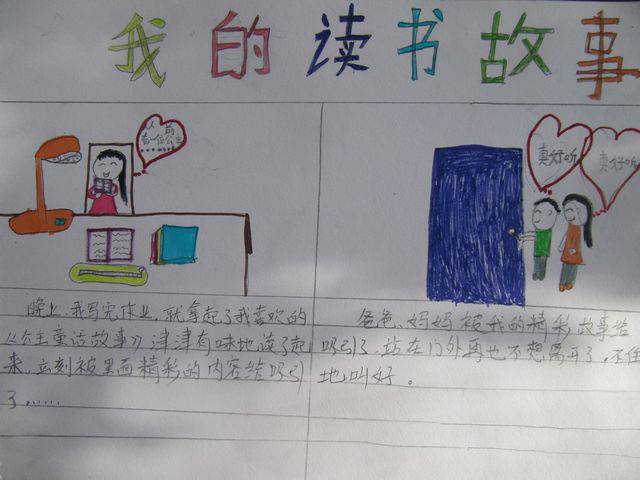 我的读书故事
从前
有一位公主
......
真好听
真好听
晚上,我写完作业,就拿起了我喜欢的
《公主童话故事》津津有味地读了起
来,立刻被里面精彩的内容给吸引
了......
爸爸、妈妈被我的精彩故事给
吸引了,站在门外再也不想离开了,不住
地叫好。